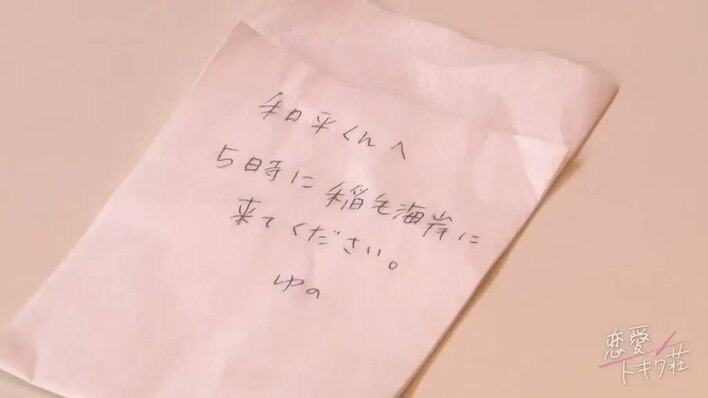 和平くんへ
5時に稲毛海岸に
来てください。
ゆの
恋愛
トキワ荘